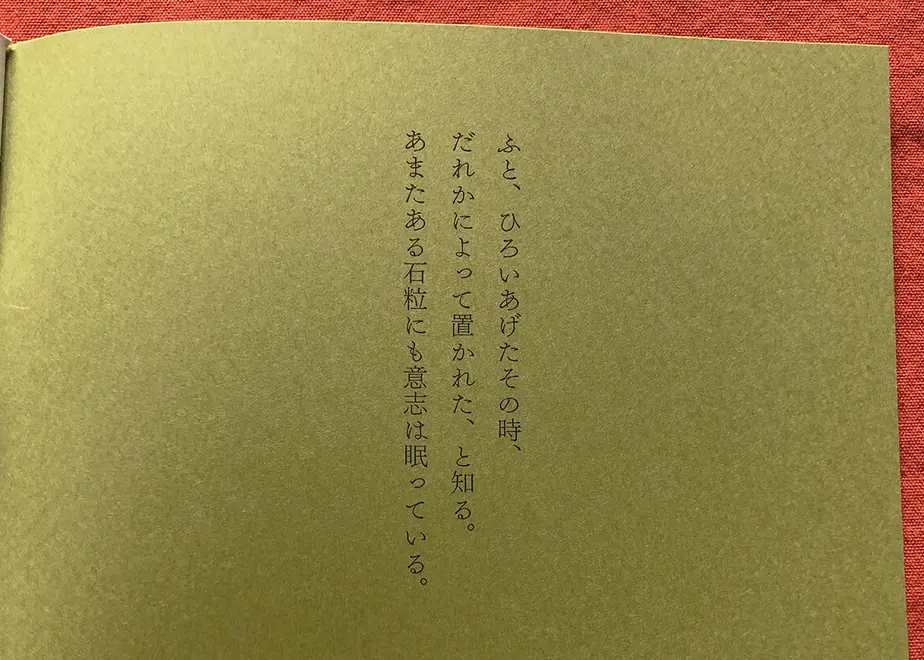 ふと、ひろいあげたその時、
だれかによって置かれた、と知る。
あまたある石粒にも意志は眠っている。